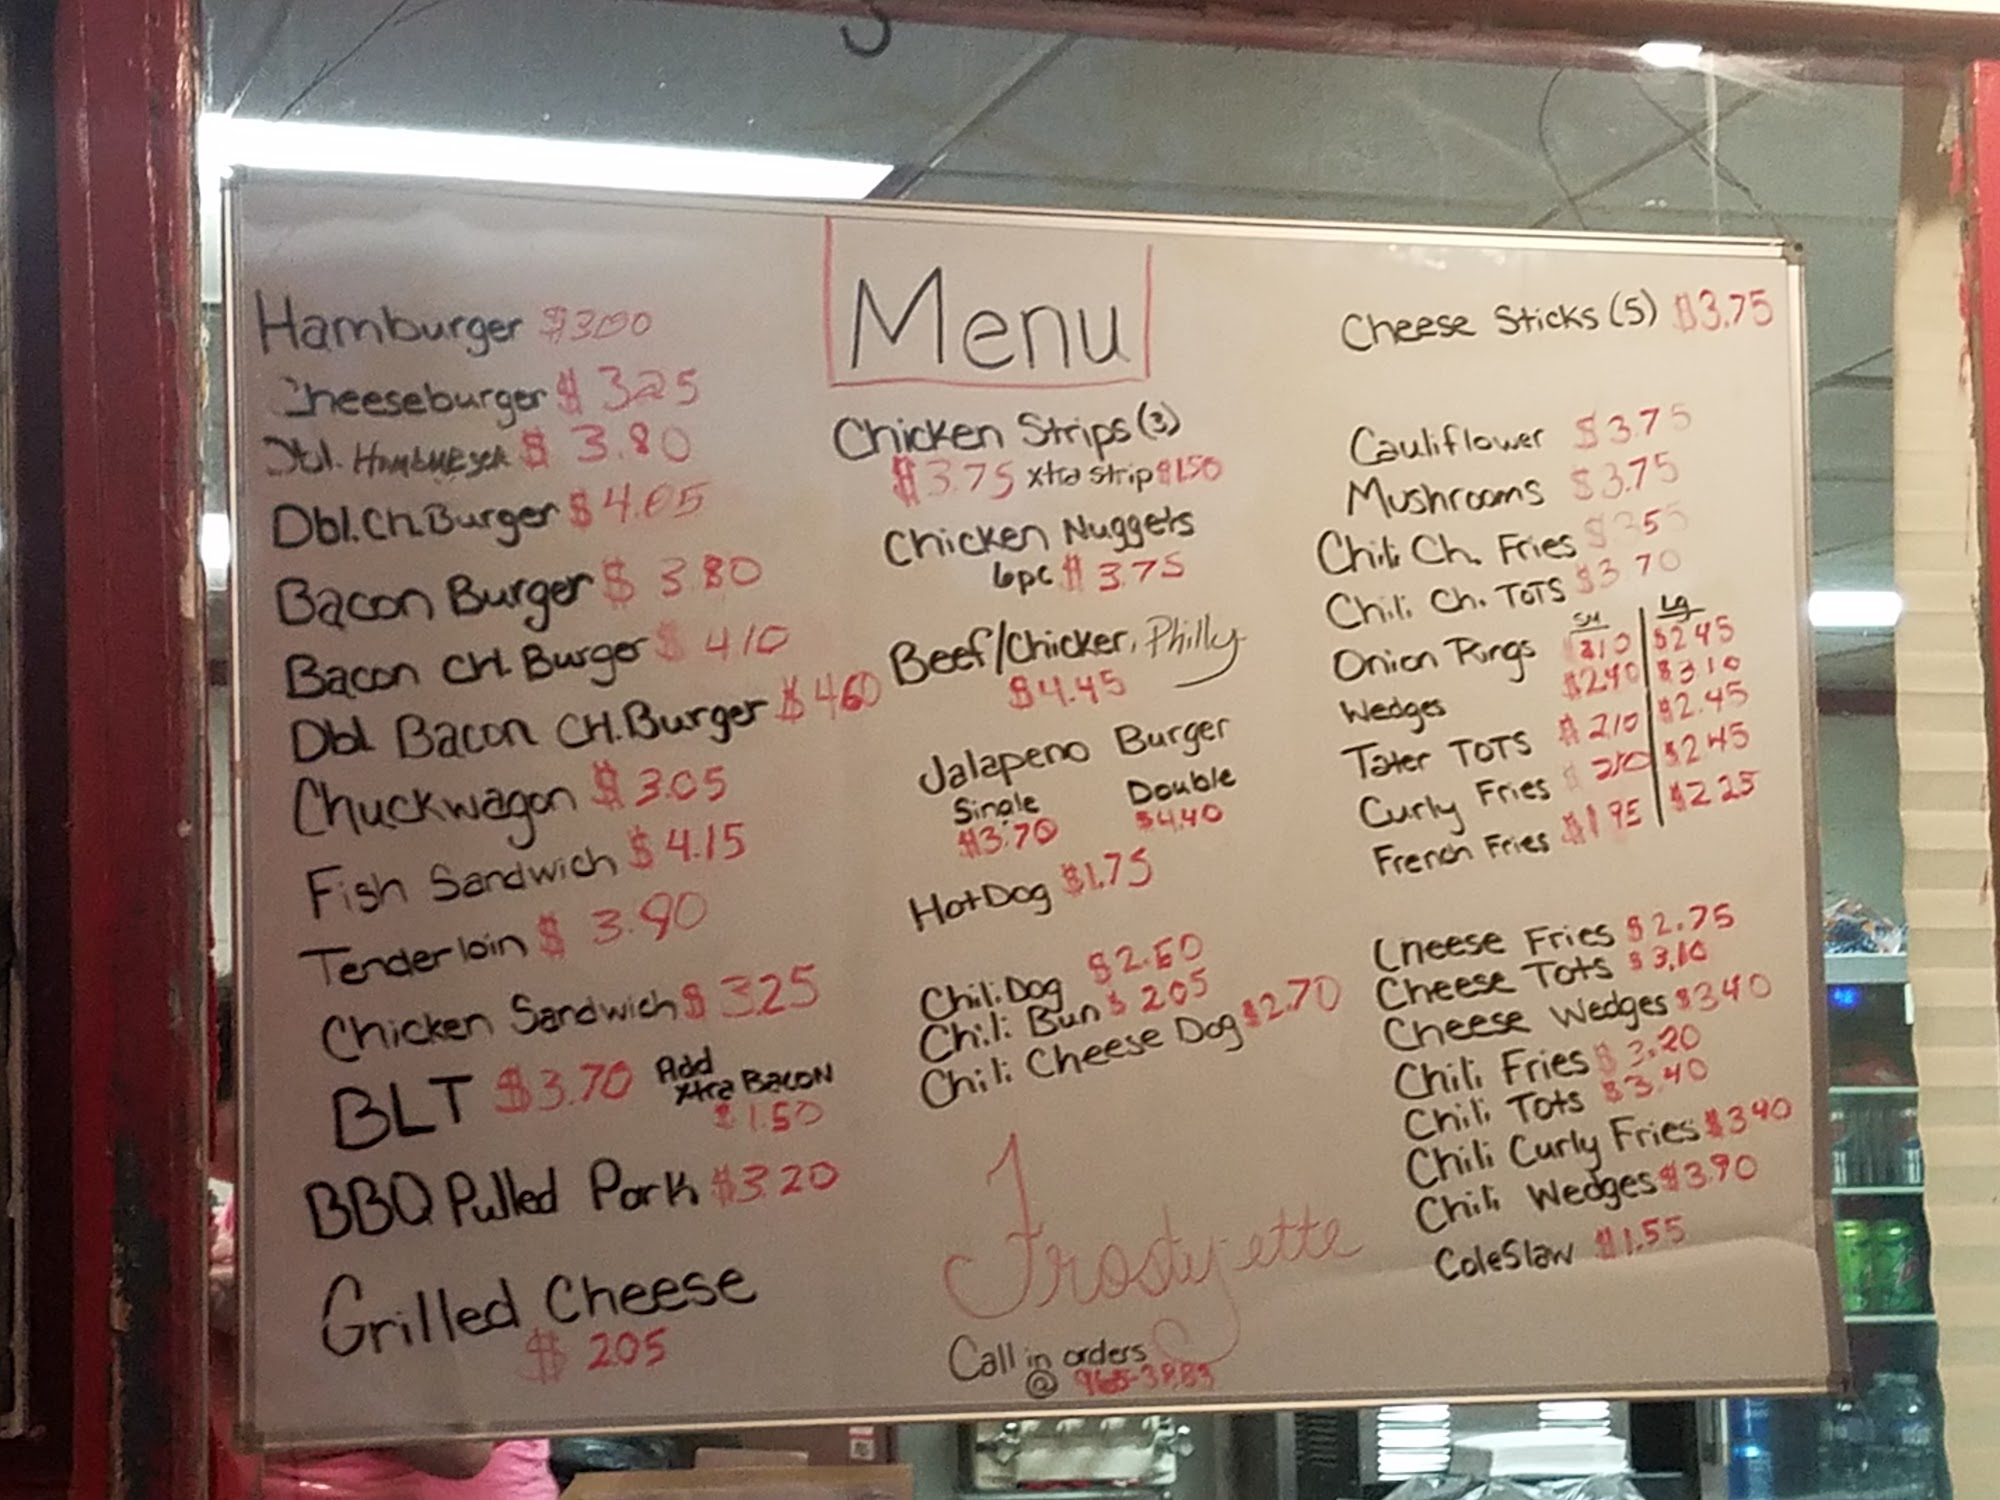 Menu
Hamburger $3.00
Cheeseburger $3.25
Dbl. Hamburger $3.80
Dbl. Ch. Burger $4.05
Bacon Burger $3.80
Bacon CH. Burger $4.10
Dbl Bacon CH. Burger $4.60
Chuckwagon $3.05
Fish Sandwich $4.15
Tenderloin $3.90
Chicken Sandwich $3.25
BLT $3.70 Add
Xtra BACON
$1.50
BBQ Pulled Pork $3.20
Grilled Cheese
$2.05
Chicken Strips (3)
$3.75 xtra strip $1.50
Chicken Nuggets
6pc $3.75
Beef/Chicken, Philly
$4.45
Jalapeno Burger
Single Double
$3.70 $4.40
Hot Dog $1.75
Chili Dog $2.60
Chili Bun $2.05
Chili Cheese Dog $2.70
Frostyette
Call in orders
@ 965-3883
Cheese Sticks (5) $3.75
Cauliflower $3.75
Mushrooms $3.75
Chili Ch. Fries $
Chili Ch. TOTS $3.70
SM LG
Onion Rings $2.45
Wedges $2.40 $3.10
Tater TOTS $2.10 $2.45
Curly Fries $2.10 $2.45
French Fries $1.95 $2.25
Cheese Fries $2.75
Cheese Tots $3.10
Cheese Wedges $3.40
Chili Fries $3.20
Chili Tots $3.40
Chili Curly Fries $3.40
Chili Wedges $3.90
ColeSlaw $1.55